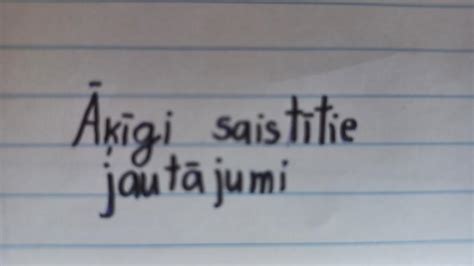 Āķīgi saistītie
jautājumi